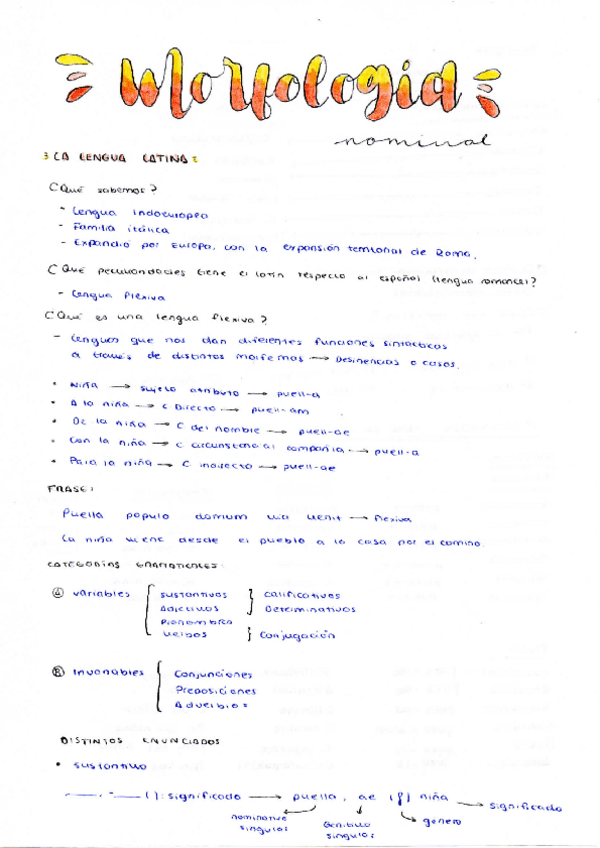 Morfología
nominal
3 LA LENGUA LATINA:
¿Qué sabemos?
- Lengua indoeuropea
- Familia itálica
- Expandió por Europa, con la expansión territorial de Roma.
¿Qué peculiaridades tiene el latín respecto al español (lengua romance)?
- Lengua flexiva
¿Qué es una lengua flexiva?
- Lenguas que nos dan diferentes funciones sintácticas
a través de distintos morfemas → Desinencias o casos.
• Niña → sujeto atributo → puell-a
• A la niña → C Directo → puell-am
• De la niña → C del nombre → puell-ae
• Con la niña → C circunstancial compañía → puell-a
• Para la niña → C indirecto → puell-ae
FRASE:
Puella populo domum via venit → flexiva
La niña viene desde el pueblo a la casa por el camino.
CATEGORÍAS GRAMATICALES:
A variables { sustantivos } calificativos
Adjetivos } Determinativos
Pronombres
verbos } conjugación
B Invariables { Conjunciones
Preposiciones
Adverbios
DISTINTOS ENUNCIADOS
• sustantivo
____, -____ ( ): significado → puella, ae (f) niña → significado
nominativo singular
Genitivo singular
genero